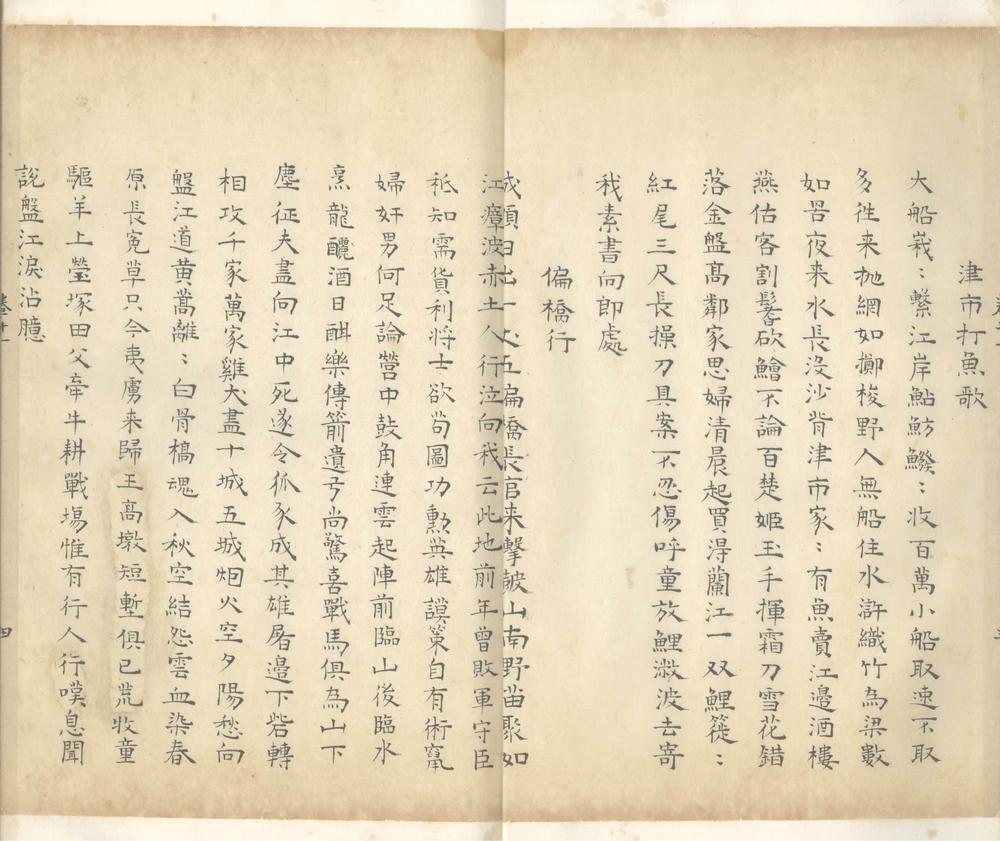 津市打魚歌
大船峩〻繫江岸鮎魴鱍〻收百萬小船取速不取
多徃来抛網如擲梭野人無船住水滸織竹為梁數
如罟夜来水長沒沙背津市家〻有魚賣江邊酒樓
燕估客割鬐砍鱠不論百楚姬玉手揮霜刀雪花錯
落金盤髙鄰家思婦清晨起買淂蘭江一双鯉簁〻
紅尾三尺長操刀具案不忍傷呼童放鯉潎波去寄
我素書向郎處
偏橋行
城頭日出一丈五偏橋長官来擊皷山南野苗聚如
江瘴波赤土人行泣向我云此地前年曾敗軍守臣
秖知需貨利将士欲茍圖功勲英雄謨策自有術竄
婦奸男何足論營中鼓角連雲起陣前臨山後臨水
烹龍釃酒日酣樂傳箭遺弓尚驚喜戰馬俱為山下
塵征夫盡向江中死遂令狐豕成其雄屠邉下砦轉
相攻千家萬家雞犬盡十城五城烟火空夕陽愁向
盤江道黄蒿離〻白骨槁魂入秋空結怨雲血染春
原長寃草只今夷虜来歸王髙墩短塹俱已荒牧童
驅羊上塋塚田父牽牛耕戰塲惟有行人行嘆息聞
說盤江淚沾臆
四